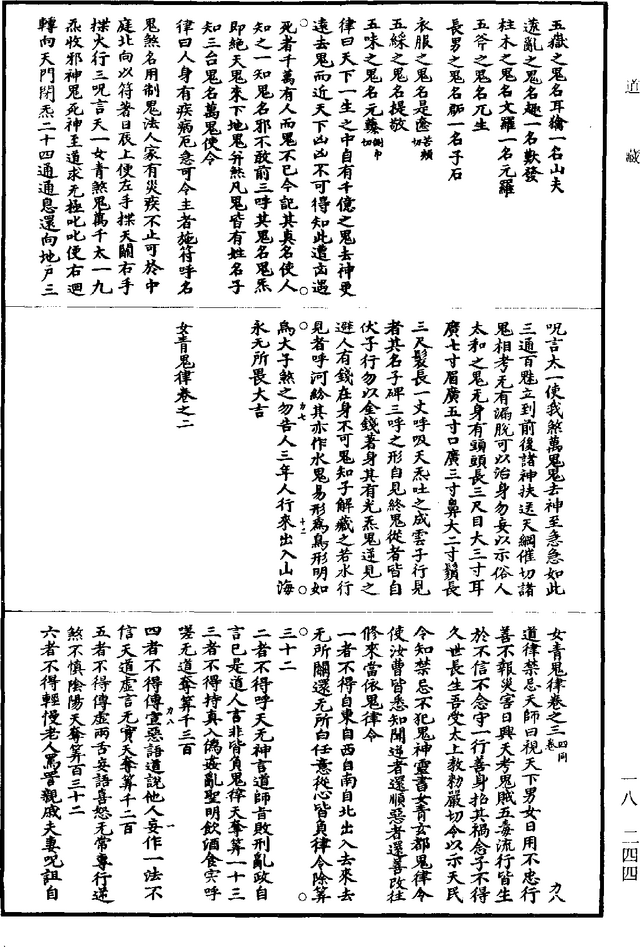 道藏
五嶽之鬼名耳䝔一名山夫
遠亂之鬼名趣一名歎發
柱木之鬼名文羅一名元羅
五斧之鬼名兀生
長男之鬼名䶊一名子石
衣服之鬼名是㥦苦頰切
五綵之鬼名提敬
五味之鬼名元
律曰天下一生之中自有千億之鬼去神更
遠去鬼而近天下凶凶不可得知此遭凶遇
死者千萬有人而鬼不已今記其真名使人
知之一知鬼名邪不敢前三呼其鬼名鬼炁
即絕天鬼來下地鬼并煞凡鬼皆有姓名子
知三台鬼名萬鬼使令
律曰人身有疾病厄急可令主者施符呼名
鬼煞名用制鬼法人家有災疾不止可於中
庭北向以符著日衣上使左手捰天關右手
捰火行三呪言天一女青煞鬼萬千太一九
炁收邪神鬼死神至道求无極叱叱便右迴
轉向天門閉炁二十四通通息還向地戶三
呪言太一使我煞萬鬼鬼去神至急急如此
三通百鬽立到前後諸神扶送天綱催切諸
鬼相考无有漏脫可以治身勿妄以示俗人
太和之鬼无身有頭頭長三尺目大三寸耳
廣七寸眉廣五寸口廣三寸鼻大二寸鬚長
三尺髮長一丈呼吸天炁吐之成雲子行見
者其名子碑三呼之形自見終鬼從者皆自
伏子行勿以金錢著身其有光炁鬼逕見之
避人有錢在身不可鬼知子解藏之若水行
見者呼河紛其亦作水鬼易形為鳥形明如
烏大子煞之勿告人三年人行來出入山海
永无所畏大吉
力七
十二
女青鬼律卷之二
女青鬼律卷之三 四同卷
力八
道律禁忌天師曰視天下男女日用不忠行
善不報災害日興天考鬼賊五毒流行皆生
於不信不念守一行善身招其禍念子不得
久世長生吾受太上教勑嚴切令以示天民
令知禁忌不犯鬼神靈書女青玄都鬼律令
使汝曹皆悉知聞逆者還順惡者還善改往
修來當依鬼律令
一者不得自東自西自南自北出入去來去
无所關還无所白任意從心皆負律令除筭
三十二
二者不得呼天无神言道師旨敗刑亂政自
言已是道人言非皆負鬼律天奪筭一十三
三者不得持真入偽姦亂聖明飲酒食宍呼
嗟无道奪筭千三百
力八
一
四者不得傳宣惡語道說他人妄作一法不
信天道虛言无實天奪筭千二百
五者不得傳虛兩舌妄語喜怒无常專行逆
煞不慎陰陽天奪筭百三十二
六者不得輕慢老人罵詈親戚夫妻呪詛自
一八 二四四